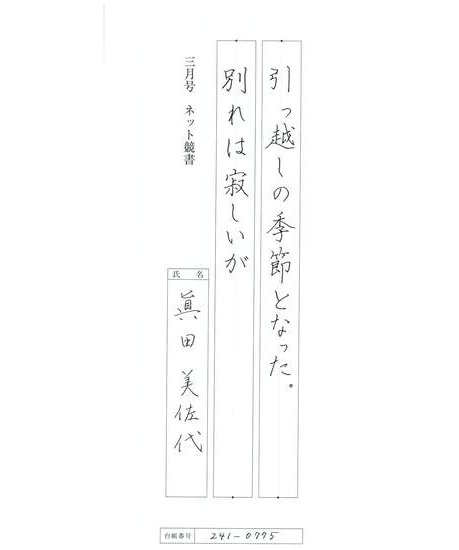 引っ越しの季節となった。
別れは寂しいが
三月号 ネット競書
氏名
眞田 美佐代
台帳番号 241-0775